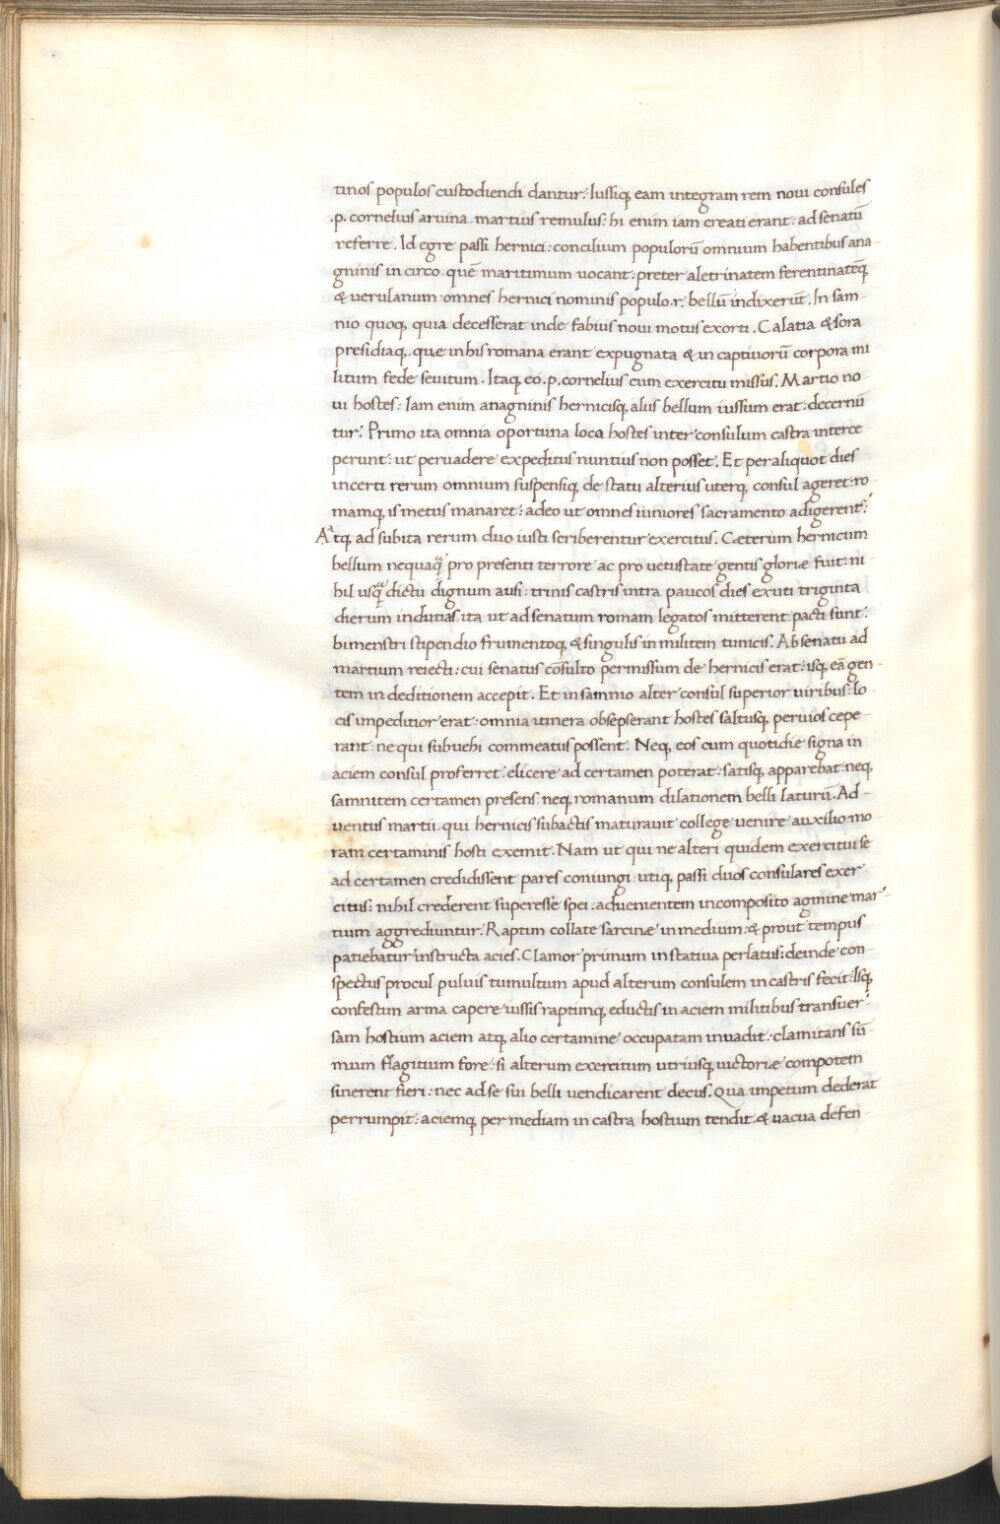 tinos populos custodiendi dantur: Iussiq; eam integram rem noui consules
.p. cornelius aruina martius remulus: hi enim iam creati erant: ad senatū
referre. Id egre passi hernici: concilium populorū omnium habentibus ana-
gninis in circo quē maritimum uocant: preter aletrinatem ferentinatēq;
& uerulanum omnes hernici nominis populo .r. bellū indixerūt. In sam-
nio quoq; quia decesserat inde fabius noui motus exorti. Calatia & sora
presidiaq; quæ in his romana erant expugnata & in captiuorū corpora mi-
litum fede seuitum. Itaq; eo .p. cornelius cum exercitu missus. Martio no-
ui hostes: Iam enim anagninis hernicisq; aliis bellum iussum erat: decernū
tur: Primo ita omnia oportuna loca hostes inter consulum castra interce
perunt: ut peruadere expeditus nuntius non posset. Et per aliquot dies
incerti rerum omnium suspensiq; de statu alterius uterq; consul ageret: ro-
mamq; is metus manaret: adeo ut omnes iuniores sacramento adigerent:
Atq; ad subita rerum duo iusti scriberentur exercitus. Cæterum hernicum
bellum nequaq̄ pro presenti terrore ac pro uetustate gentis gloriæ fuit: ni-
hil usq̄ dictu dignum ausi: trinis castris intra paucos dies exuti triginta
dierum indutias ita ut ad senatum romam legatos mitterent pacti sunt:
bimenstri stipendio frumentoq; & singulis in militem tunicis. Ab senatu ad
martium reiecti: cui senatus cōsulto permissum de hernicis erat: isq; eā gen-
tem in deditionem accepit. Et in samnio alter consul superior uiribus: lo-
cis impeditior erat: omnia itinera obsepserant hostes saltusq; peruios cepe-
rant: ne qui subuehi commeatus possent. Neq; eos cum quotidie signa in
aciem consul proferret elicere ad certamen poterat: satisq; apparebat neq;
samnitem certamen presens neq; romanum dilationem belli laturū. Ad-
uentus martii qui hernicis subactis maturauit college uenire auxilio mo-
ram certaminis hosti exemit. Nam ut qui ne alteri quidem exercitui se
ad certamen credidissent pares coniungi utiq; passi duos consulares exer-
citus: nihil crederent superesse spei: aduenientem incomposito agmine mar-
tium aggrediuntur. Raptim collate sarcinæ in medium: & prout tempus
patiebatur instructa acies. Clamor primum in statiua perlatus: deinde con-
spectus procul puluis tumultum apud alterum consulem in castris fecit: Isq;
confestim arma capere iussis raptimq; eductis in aciem militibus transuer-
sam hostium aciem atq; alio certamine occupatam inuadit: clamitans sū-
mum flagitium fore: si alterum exercitum utriusq; uictoriæ compotem
sinerent fieri: nec ad se sui belli uendicarent decus. Qua impetum dederat
perrumpit: aciemq; per mediam in castra hostium tendit & uacua defen-